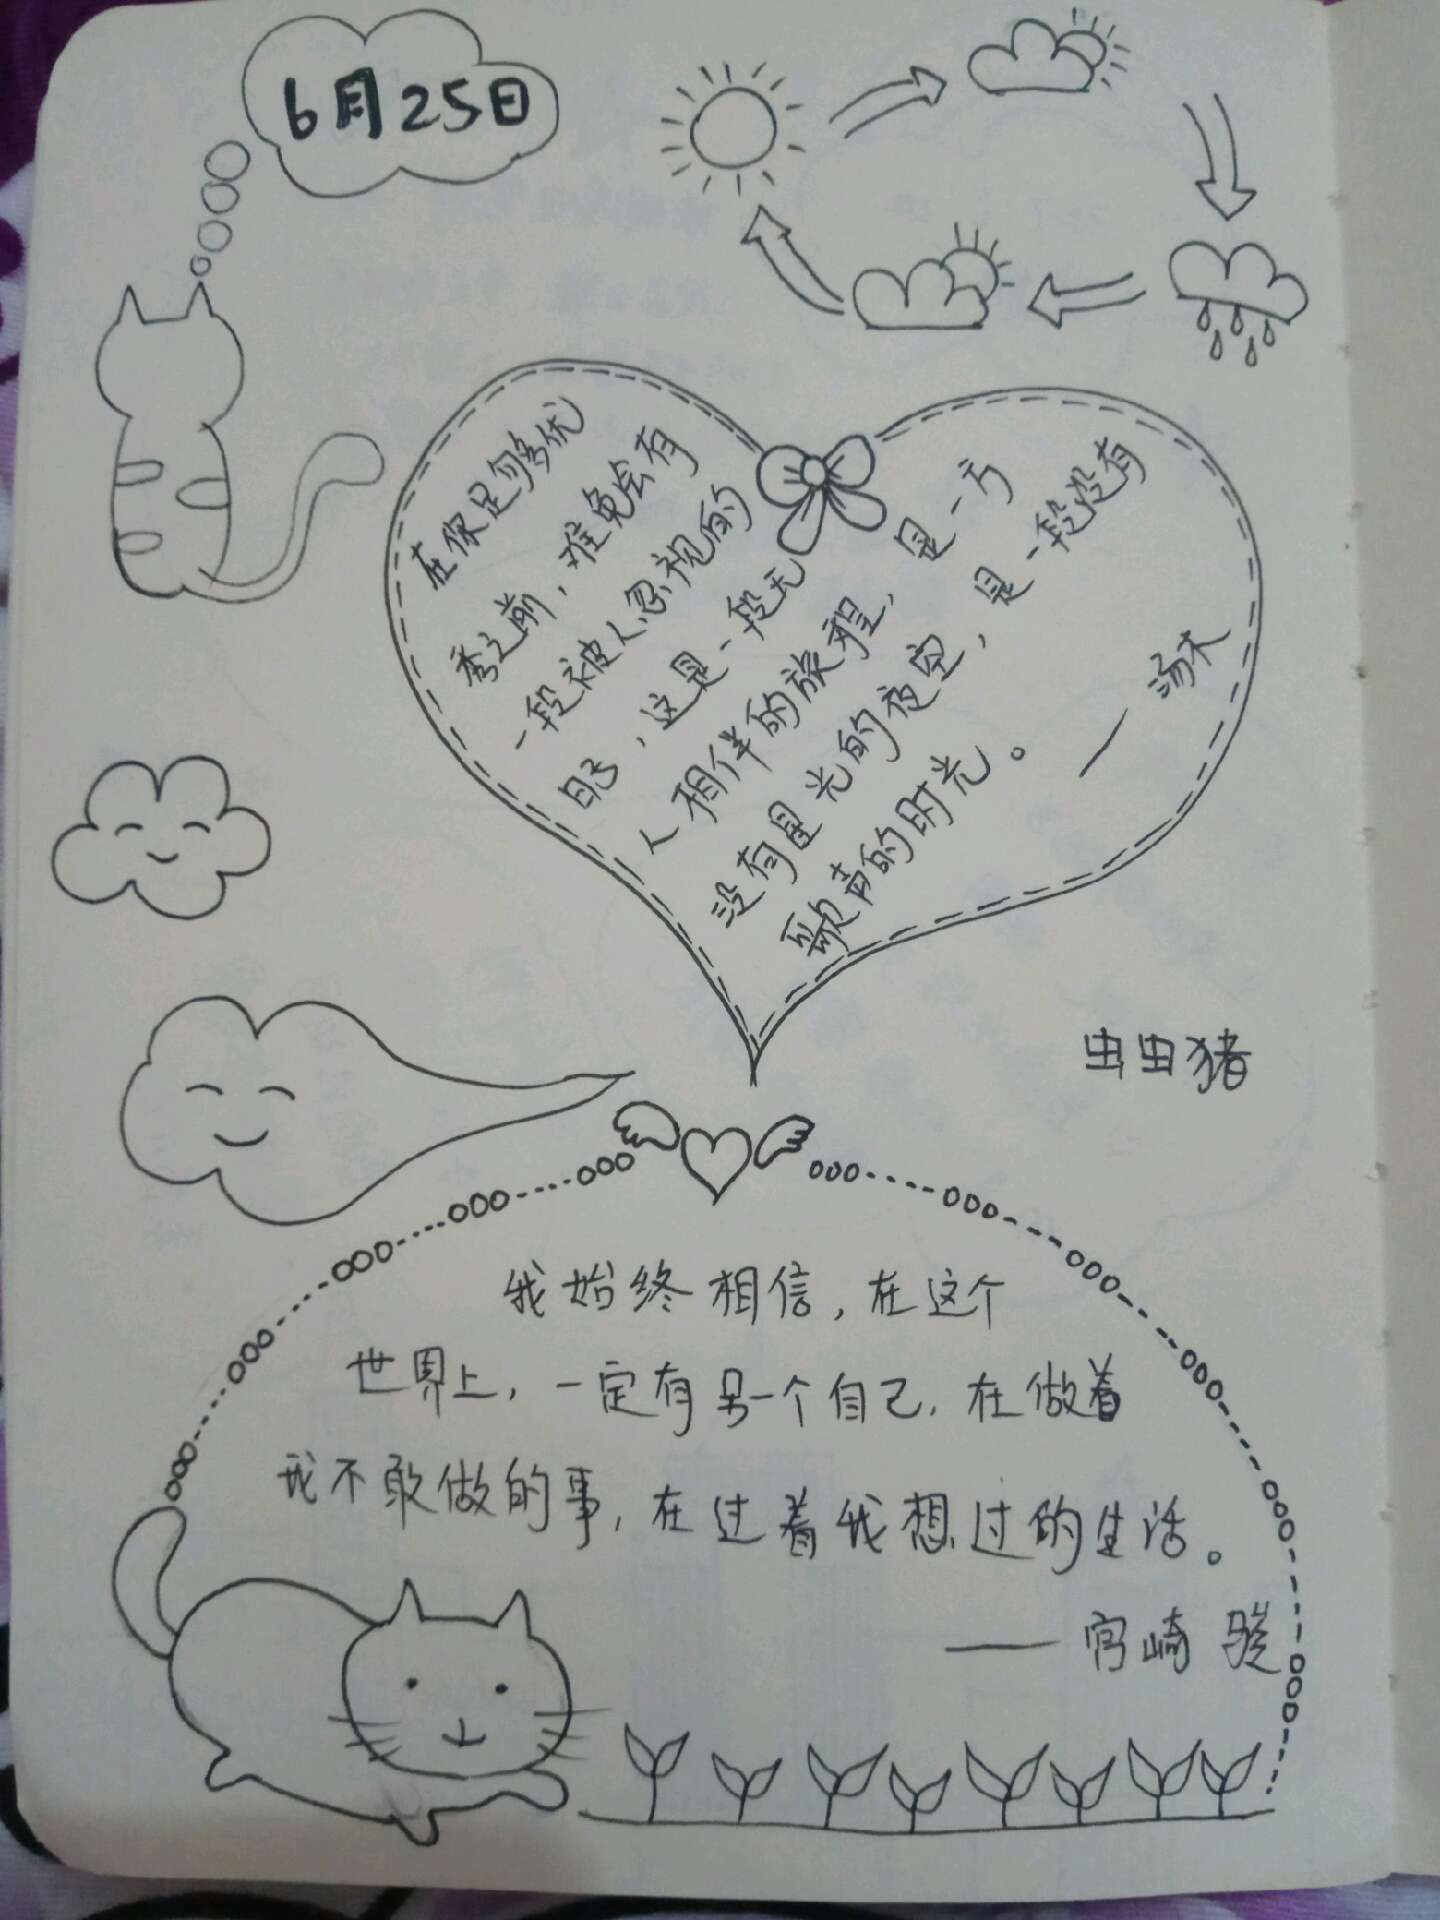 6月25日
在你足够优
秀之前，难免会有
一段被人忽视的
日子，这是一段无
人相伴的旅程，是一方
没有星光的夜空，是一段没有
歌声的时光。
——汤木
虫虫猪
我始终相信，在这个
世界上，一定有另一个自己，在做着
我不敢做的事，在过着我想过的生活。
——宫崎骏